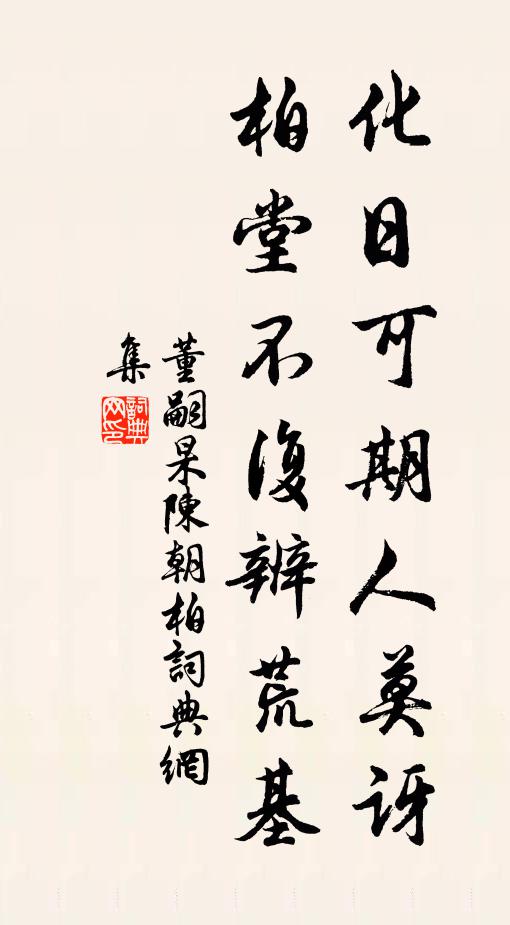 化日可期人莫訝
柏堂不復辨荒基
董嗣杲陳朝柏詞典網
集
詞典
网印